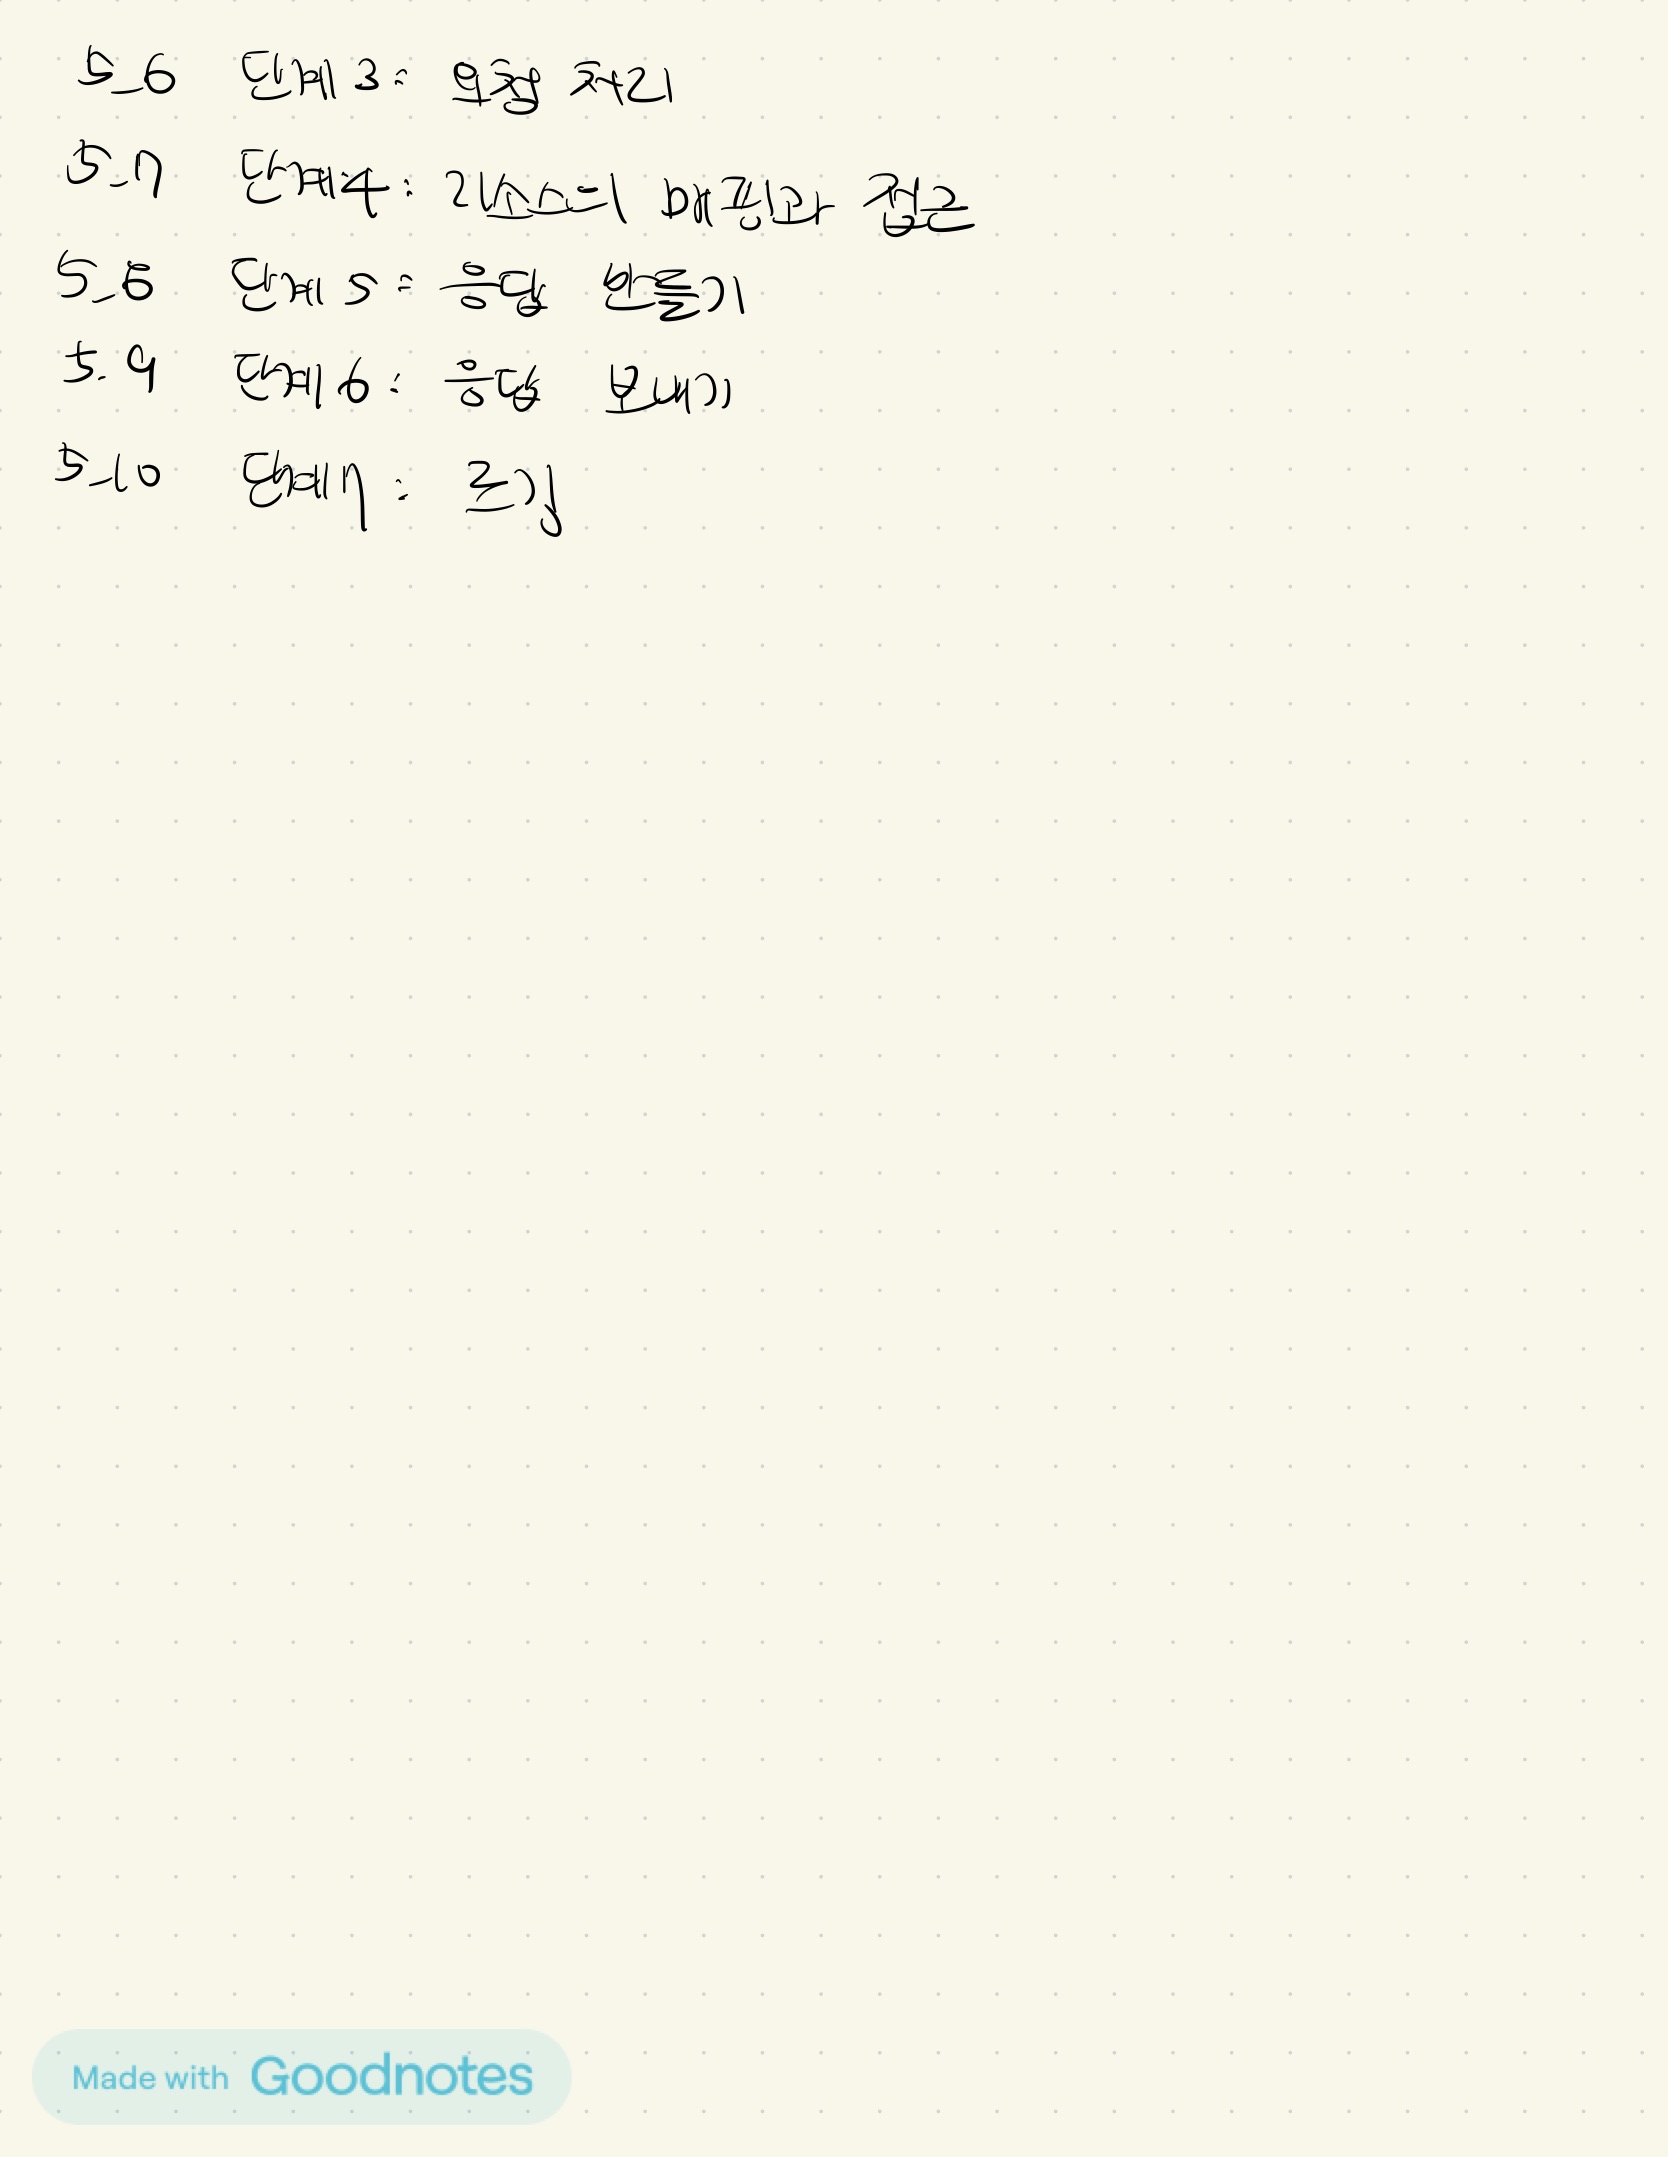 5.6 단계 3: 요청 처리
5.7 단계 4: 리소스의 매핑과 접근
5.8 단계 5: 응답 만들기
5.9 단계 6: 응답 보내기
5.10 단계 7: 로깅
Made with Goodnotes